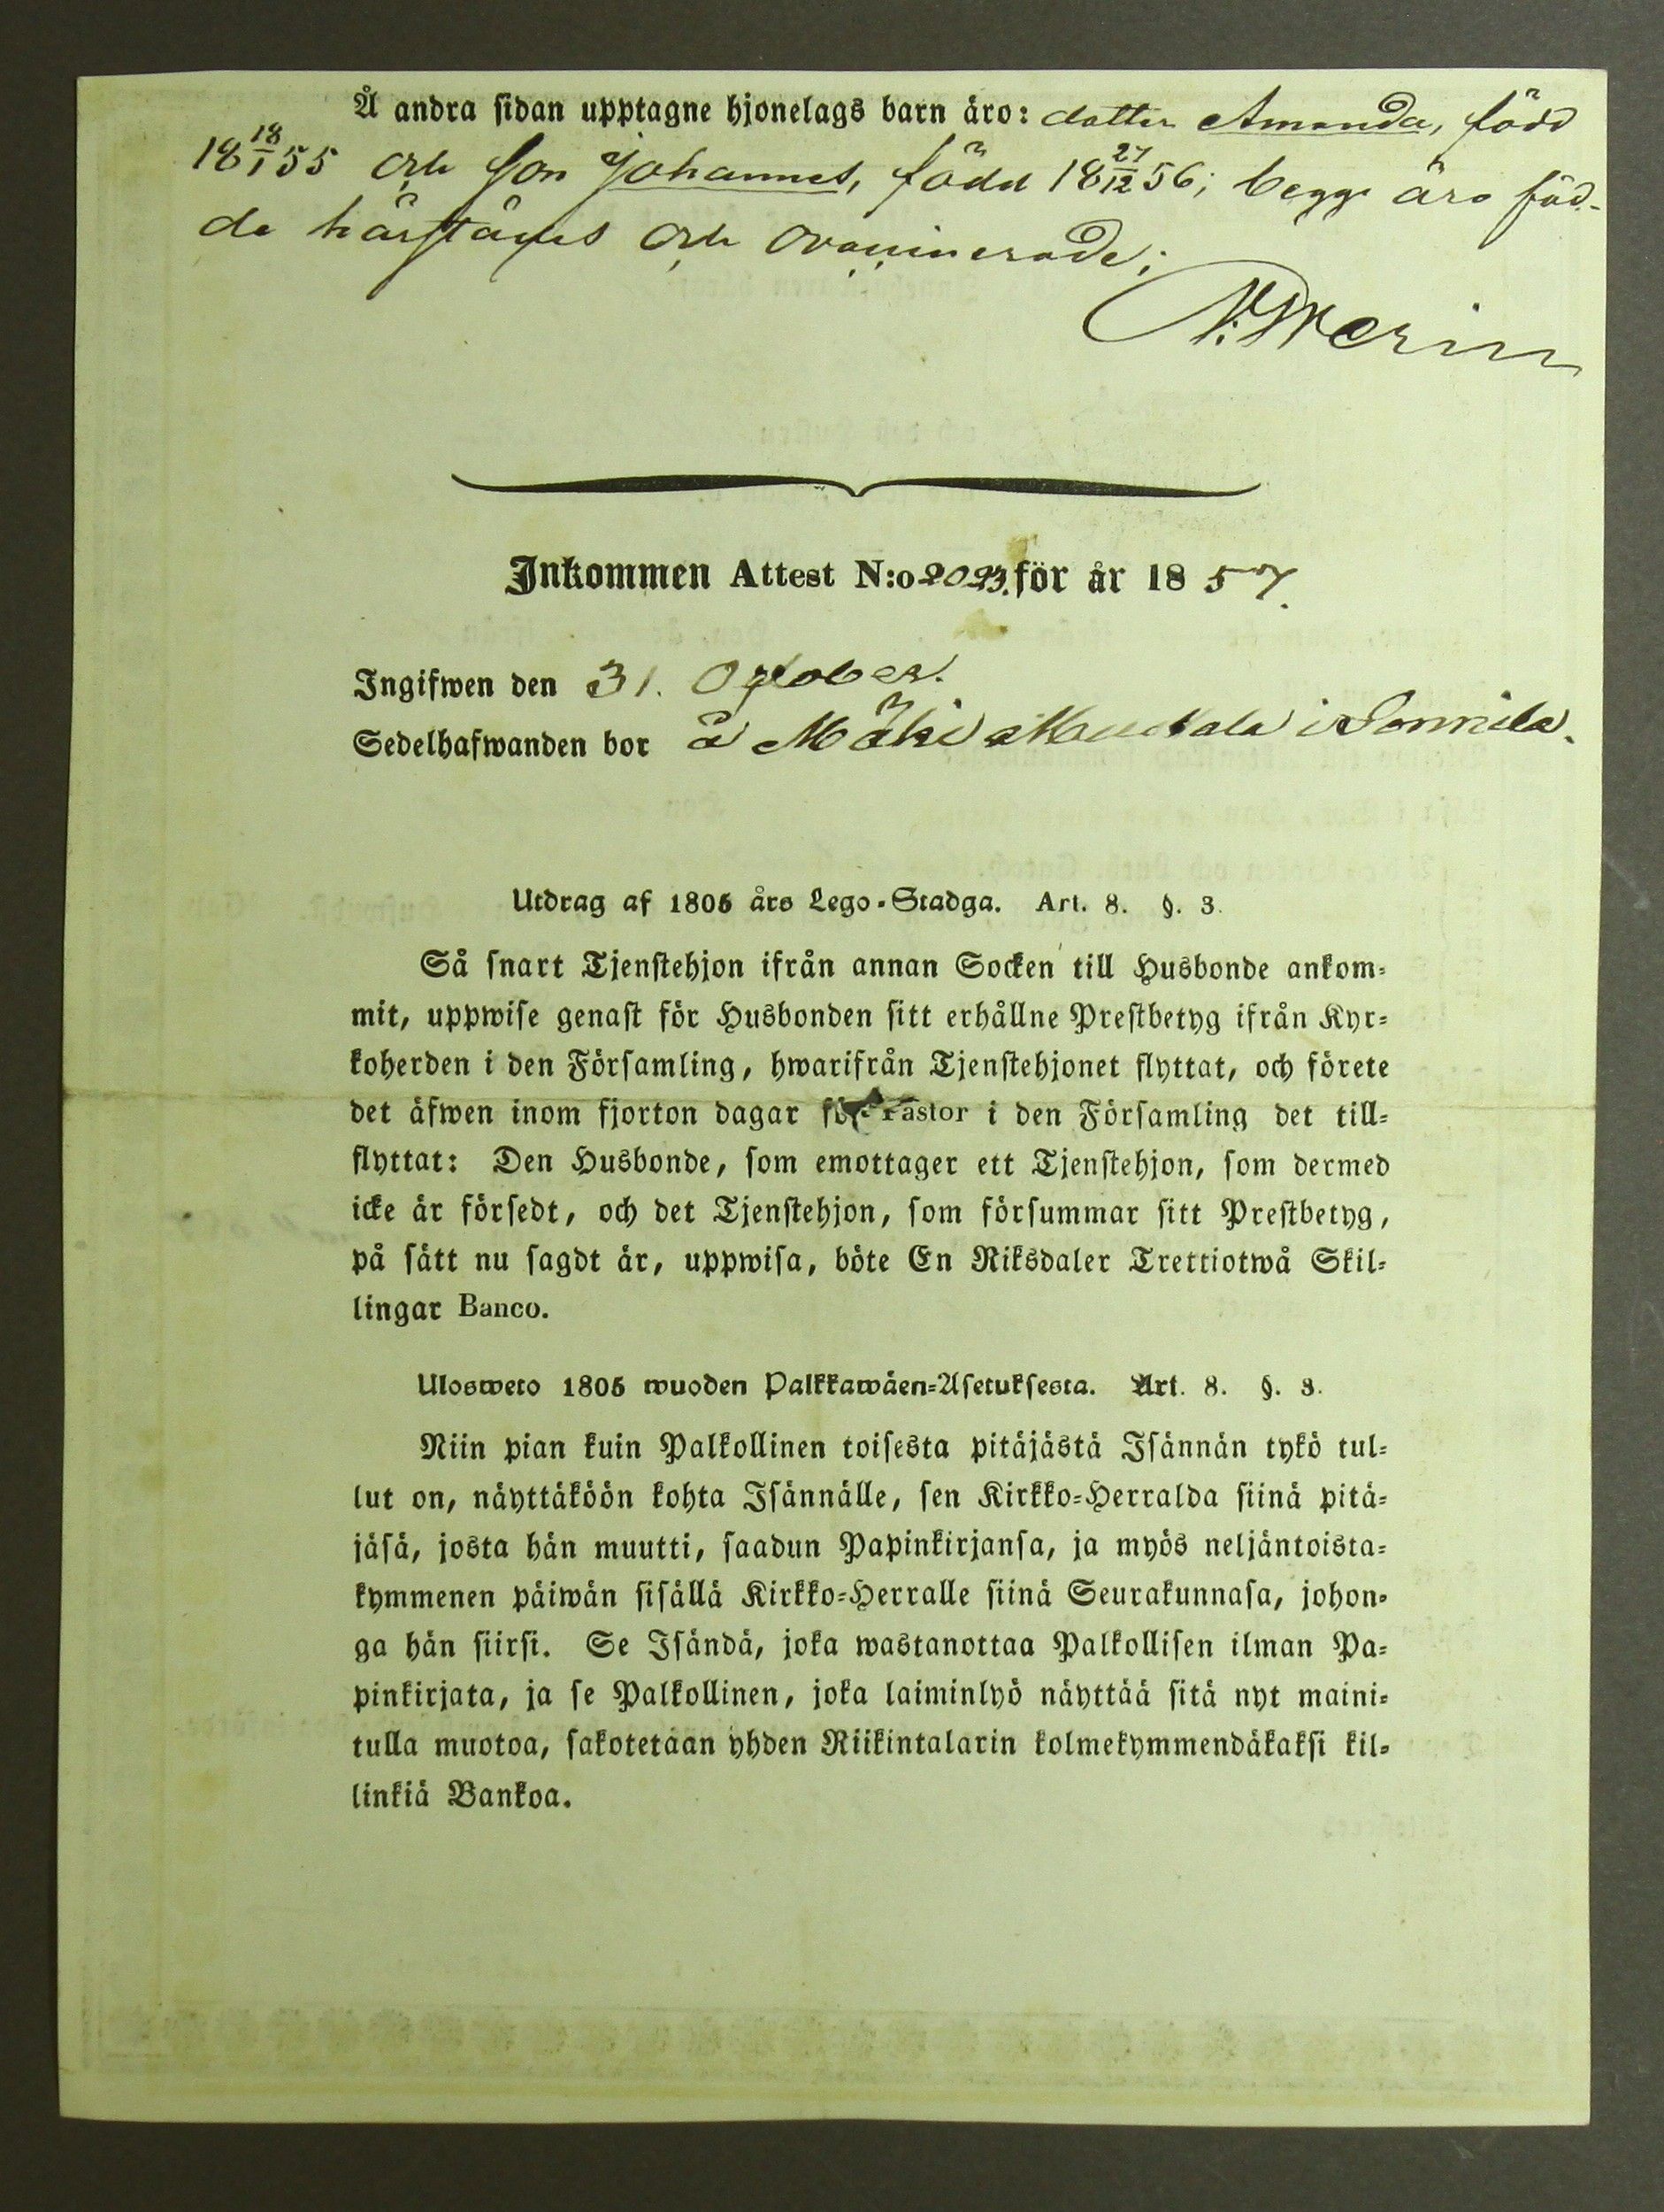 Å andra sidan upptagne hjonelags barn äro: dotter Amanda, född
18 18/1 55 och son Johannes, född 18 27/12 56; begge äro föd-
da härstädes och ovaccinerade;
Inkommen Attest N:o 2023. för år 1857.
Ingifwen den 31. October.
Sedelhafwanden bor å Mäki i
Utdrag af 1805 års Lego-Stadga. Art. 8. §. 3.
Så snart Tjenstehjon ifrån annan Socken till Husbonde ankom-
mit, uppwise genast för Husbonden sitt erhållne Prestbetyg ifrån Kyr-
koherden i den Församling, hwarifrån Tjenstehjonet flyttat, och förete
det äfwen inom fjorton dagar för Pastor i den Församling det till-
flyttat: Den Husbonde, som emottager ett Tjenstehjon, som dermed
icke är försedt, och det Tjenstehjon, som försummar sitt Prestbetyg,
på sätt nu sagdt är, uppwisa, böte En Riksdaler Trettiotwå Skil-
lingar Banco.
Ulosweto 1805 wuoden Palkkawäen-Asetuksesta. Art. 8. §. 3.
Niin pian kuin Palkollinen toisesta pitäjästä Isännän tykö tul-
lut on, näyttäköön kohta Isännälle, sen Kirkko-Herralda siinä pitä-
jäsä, josta hän muutti, saadun Papinkirjansa, ja myös neljäntoista-
kymmenen päiwän sisällä Kirkko-Herralle siinä Seurakunnasa, johon-
ga hän siirsi. Se Isändä, joka wastanottaa Palkollisen ilman Pa-
pinkirjata, ja se Palkollinen, joka laiminlyö näyttää sitä nyt maini-
tulla muotoa, sakotetaan yhden Riikintalarin kolmekymmendäkaksi kil-
linkiä Bankoa.